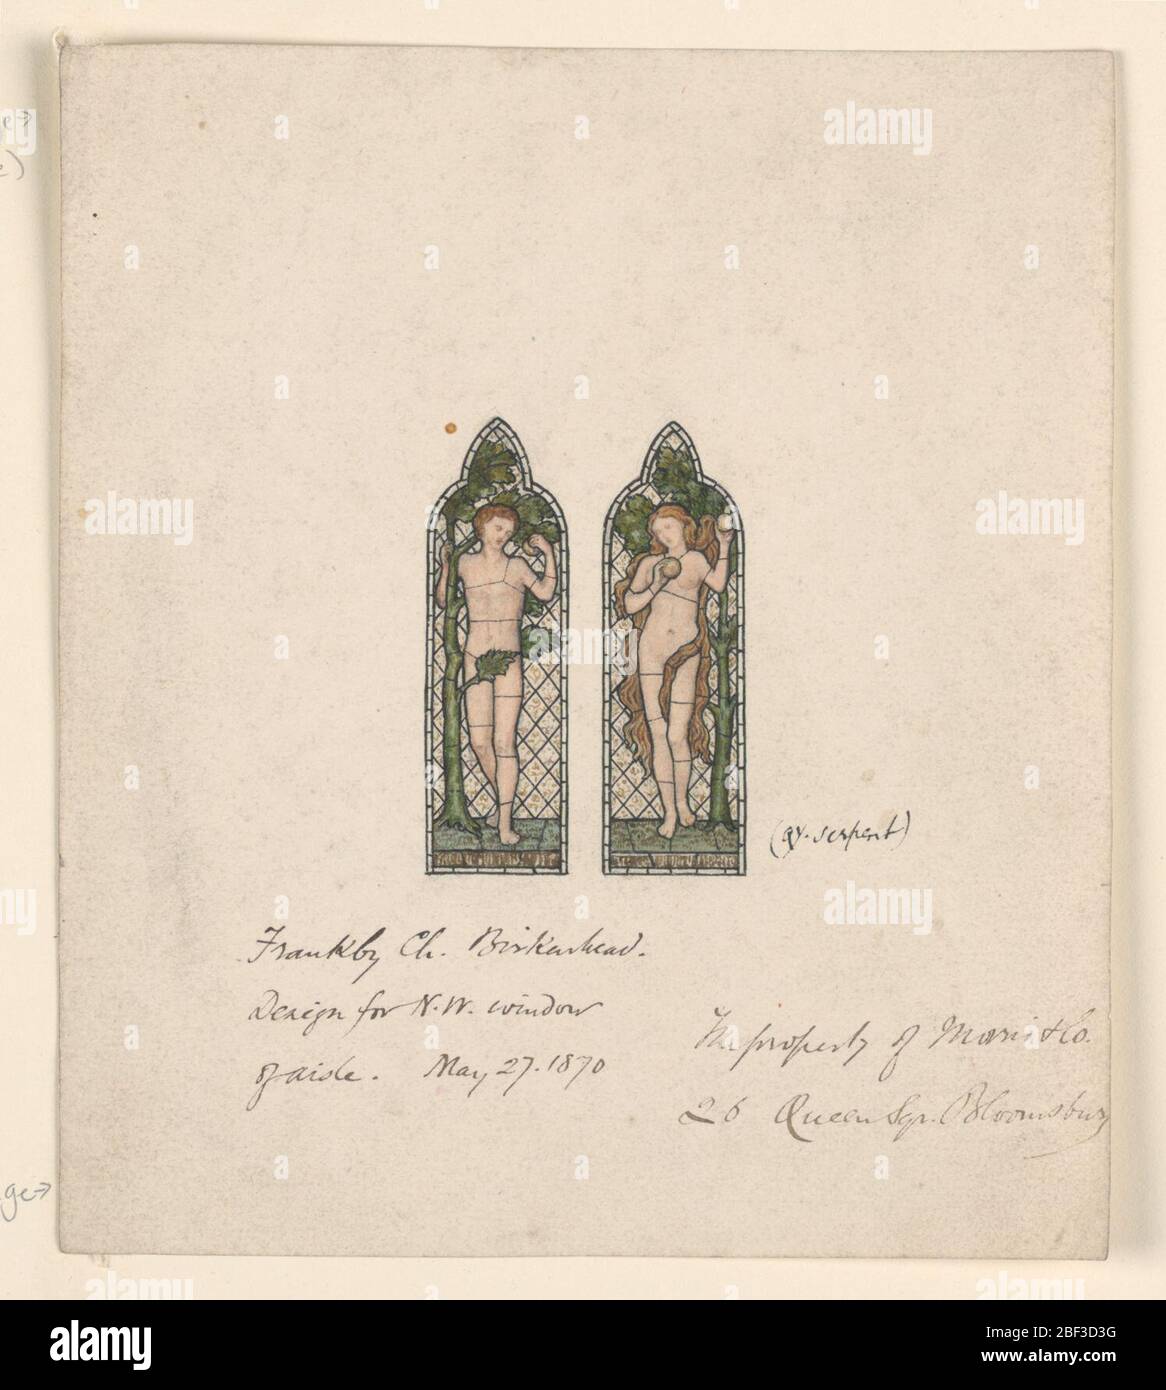 (qy. serpent)
Frankby Ch. Birkenhead.
Design for N.W. window
of aisle. May 27. 1870
The property of Morris & Co.
26 Queen Sqr. Bloomsbury
alamy
Image ID: 2BF3D3G
www.alamy.com